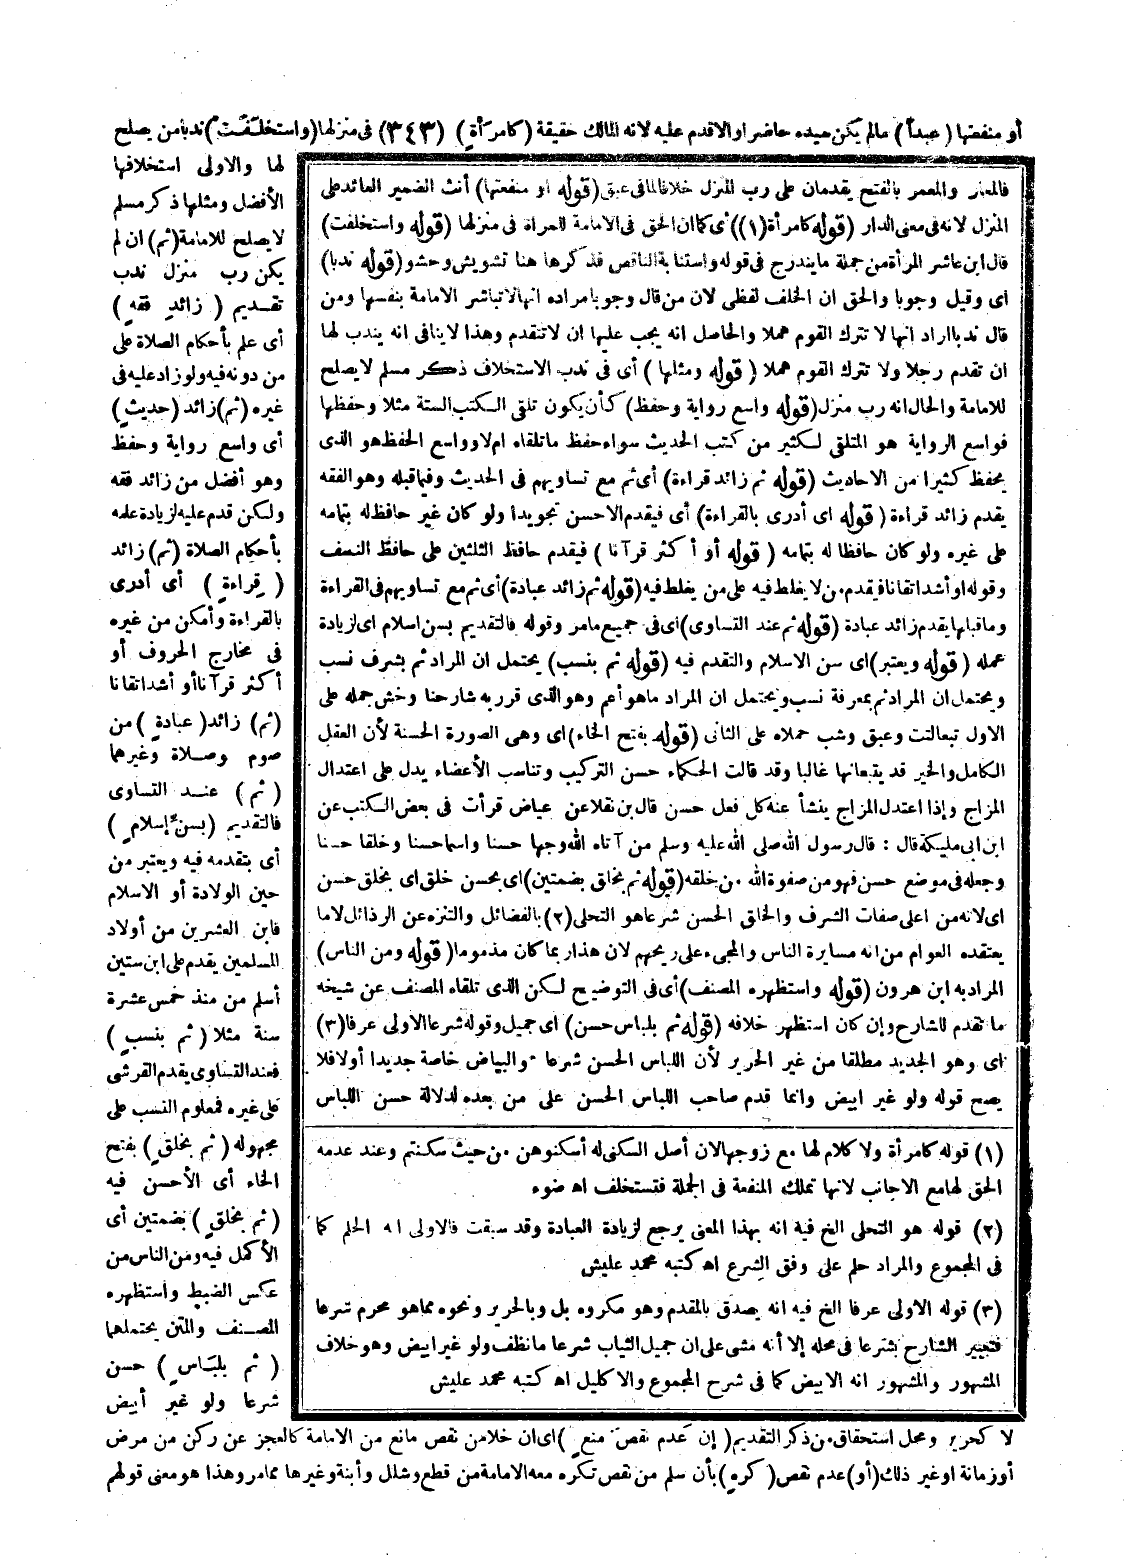 أو منفعتها (عبداً) مالم يكن سيده حاضرا والاقدم عليه لانه المالك حقيقة (كامرأةٍ) (٣٤٣) فى منزلها (واستخلفت) ندبا من يصلح
لها والاولى استخلافها
الأفضل ومثلها ذكر مسلم
لا يصلح للامامة (ثم) ان لم
يكن رب منزل ندب
تقديم (زائدِ فقهٍ)
أى علم بأحكام الصلاة على
من دونه فيه ولو زاد عليه فى
غيره (ثم) زائد (حديثٍ)
أى واسع رواية وحفظ
وهو أفضل من زائد فقه
ولكن قدم عليه لزيادة علمه
بأحكام الصلاة (ثم) زائد
(قراءةٍ) أى أدرى
بالقراءة وأمكن من غيره
فى مخارج الحروف أو
أكثر قرآنا أو أشد اتقانا
(ثم) زائد (عبادةٍ) من
صوم وصلاة وغيرهما
(ثم) عند التساوى
فالتقديم (بسن إسلامٍ)
أى بتقدمه فيه ويعتبر من
حين الولادة أو الاسلام
فابن العشرين من أولاد
المسلمين يقدم على ابن ستين
أسلم من منذ خمس عشرة
سنة مثلا (ثم بنسبٍ)
فعند التساوى يقدم القرشى
على غيره فمعلوم النسب على
مجهوله (ثم بخلقٍ) بفتح
الخاء أى الأحسن فيه
(ثم بخلقٍ) بضمتين أى
الأكمل فيه ومن الناس من
عكس الضبط واستظهره
المصنف والمتن يحتملهما
(ثم بلباسٍ) حسن
شرعا ولو غير أبيض
لا كحرير ومحل استحقاق من ذكر التقديم (إن عدم نقصَ منعٍ) اى ان خلا من نقص مانع من الامامة كالعجز عن ركن من مرض
أو زمانة او غير ذلك (أو) عدم نقص (كرهٍ) بأن سلم من نقص تكره معه الامامة من قطع وشلل وأبنة وغيرها مما مر وهذا هو معنى قولهم
فالمعار والمعمر بالفتح يقدمان على رب المنزل خلافا لما فى عبق (قوله او منفعتها) أنث الضمير العائد على
المنزل لانه فى معنى الدار (قوله كامرأة (١)) أى كما ان الحق فى الامامة للمرأة فى منزلها (قوله واستخلفت)
قال ابن عاشر المرأة من جملة ما يندرج فى قوله واستنابة الناقص فذكرها هنا تشويش وحشو (قوله ندبا)
اى وقيل وجوبا والحق ان الخلف لفظى لان من قال وجوبا مراده انها لا تباشر الامامة بنفسها ومن
قال ندبا اراد انها لا تترك القوم هملا والحاصل انه يجب عليها ان لا تتقدم وهذا لا ينافى انه يندب لها
ان تقدم رجلا ولا تترك القوم هملا (قوله ومثلها) أى فى ندب الاستخلاف ذكر مسلم لا يصلح
للامامة والحال انه رب منزل (قوله واسع رواية وحفظ) كأن يكون تلقى الكتب الستة مثلا وحفظها
فواسع الرواية هو المتلقى لكثير من كتب الحديث سواء حفظ ما تلقاه ام لا وواسع الحفظ هو الذى
يحفظ كثيرا من الاحاديث (قوله ثم زائد قراءة) أى ثم مع تساويهم فى الحديث وفيما قبله وهو الفقه
يقدم زائد قراءة (قوله اى أدرى بالقراءة) أى فيقدم الاحسن تجويدا ولو كان غير حافظ له بتمامه
على غيره ولو كان حافظا له بتمامه (قوله أو أكثر قرآنا) فيقدم حافظ الثلثين على حافظ النصف
وقوله او أشد اتقانا فيقدم من لا يغلط فيه على من يغلط فيه (قوله ثم زائد عبادة) أى ثم مع تساويهم فى القراءة
وما قبلها يقدم زائد عبادة (قوله ثم عند التساوى) أى فى جميع ما مر وقوله فالتقديم بسن اسلام اى لزيادة
عمله (قوله ويعتبر) اى سن الاسلام والتقدم فيه (قوله ثم بنسب) يحتمل ان المراد ثم بشرف نسب
ويحتمل ان المراد ثم بمعرفة نسب ويحتمل ان المراد ما هو أعم وهو الذى قرر به شارحنا وخش حمله على
الاول تبعا لتت وعبق وشب حملاه على الثانى (قوله بفتح الخاء) اى وهى الصورة الحسنة لأن العقل
الكامل والخير قد يتبعانها غالبا وقد قالت الحكماء حسن التركيب وتناسب الأعضاء يدل على اعتدال
المزاج وإذا اعتدل المزاج ينشأ عنه كل فعل حسن قال بن نقلا عن عياض قرأت فى بعض الكتب عن
ابن ابى مليكة قال : قال رسول الله صلى الله عليه وسلم من آتاه الله وجها حسنا واسما حسنا وخلقا حسنا
وجعله فى موضع حسن فهو من صفوة الله من خلقه (قوله ثم بخلق بضمتين) اى بحسن خلق اى بخلق حسن
اى لانه من اعلى صفات الشرف والخلق الحسن شرعا هو التحلى (٢) بالفضائل والتنزه عن الرذائل لا ما
يعتقده العوام من انه مسايرة الناس والمجىء على ريحهم لان هذا ربما كان مذموما (قوله ومن الناس)
المراد به ابن هرون (قوله واستظهره المصنف) أى فى التوضيح لكن الذى تلقاه المصنف عن شيخه
ما تقدم للشارح وإن كان استظهر خلافه (قوله ثم بلباس حسن) اى جميل وقوله شرعا الاولى عرفا (٣)
اى وهو الجديد مطلقا من غير الحرير لأن اللباس الحسن شرعا هو البياض خاصة جديدا أو لا فلا
يصح قوله ولو غير ابيض وانما قدم صاحب اللباس الحسن على من بعده لدلالة حسن اللباس
(١) قوله كامرأة ولا كلام لها مع زوجها لان أصل السكنى له أسكنوهن من حيث سكنتم وعند عدمه
الحق لها مع الاجانب لانها تملك المنفعة فى الجملة فتستخلف اه ضوء
(٢) قوله هو التحلى الخ فيه انه بهذا المعنى يرجع لزيادة العبادة وقد سبقت فالاولى انه الحلم كما
فى المجموع والمراد حلم على وفق الشرع اه كتبه محمد عليش
(٣) قوله الاولى عرفا الخ فيه انه يصدق بالمقدم وهو مكروه بل وبالحرير ونحوه مما هو محرم شرعا
فتعبير الشارح بشرعا فى محله إلا أنه مشى على ان جميل الثياب شرعا ما نظف ولو غير ابيض وهو خلاف
المشهور والمشهور انه الابيض كما فى شرح المجموع والاكليل اه كتبه محمد عليش